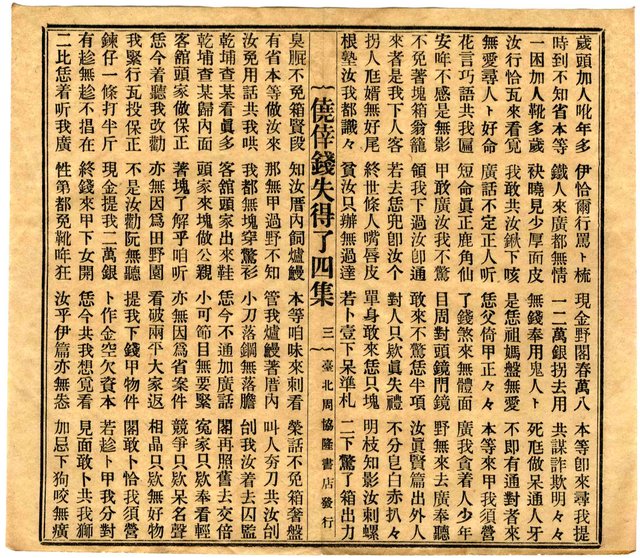 歲頭加人吪年多 伊恰爾行罵卜梳 現金野閣春萬八 本等卽來尋我提
時到不知省本等 鐵人來廣都無情 一二萬銀拐去用 共謀詐欺明々々
一困加人靴多歲 袂曉見少厚面皮 無錢奉用鬼人卜 死尫做呆通人牙
汝行恰瓦來看覓 我敢共汝鍬下咳 是恁祖媽盤無愛 不卽有通對者來
無愛尋人卜好命 廣話不定正人听 恁父倚甲正々々 本等來甲我須營
花言巧語共我匾 短命眞正鹿角仙 了錢煞來無體面 廣我貪着人少年
安哖不感是無影 甲敢廣汝我不驚 目周對頭鏡門鏡 野無來去廣奉聽
不免著塊箱翁籠 領我下過汝卽通 敢來不驚恁半項 汝眞賢箱出外人
來者是我下人客 若去恁兜卽汝个 對人只欵眞失禮 不分皂白赤扒々
拐人尫婿無好尾 終世條人嘴唇皮 單身敢來恁只塊 明枝知影汝刺螺
根塾汝我都識々 貧汝只辦無過達 若卜壹下呆準札 二下驚了箱出力
僥倖錢失得了四集 三 臺北周協隆書店發行
臭賑不免箱賢段 知汝厝內飼爐鰻 本等咱味來刺看 榮話不免箱奢盤
有省本等做汝來 那無甲過野不知 管我爐鰻著厝內 叫人夯刀共汝刣
汝免用話共我哄 我都無塊穿驚衫 小刀落鋼無落膽 刣我汝着去囚監
乾埔查某看眞多 客舘頭家出來鞋 恁今不通加廣話 閣再照舊去交倍
乾埔查某歸內面 頭家來塊做公親 小可節目無要緊 寃家只欵奉看輕
客舘頭家做保正 著塊了解乎咱听 亦無因爲省案件 競爭只欵呆名聲
恁今着聽我改勸 亦無因爲田野園 看破兩平大家返 相晶只欵無好物
我緊行瓦投保正 不是汝勸阮無聽 提我下錢甲物件 閣敢卜恰我須營
鍊仔一條打半斤 現金提我二萬銀 卜作金空欠資本 若趁卜甲我分對
有趁無趁不捛在 終錢來甲下女開 恁今共我想覓看 見面敢卜共我獅
二比恁着听我廣 性第都免靴哖狂 汝乎伊篇亦無恙 加忌下狗咬無癀